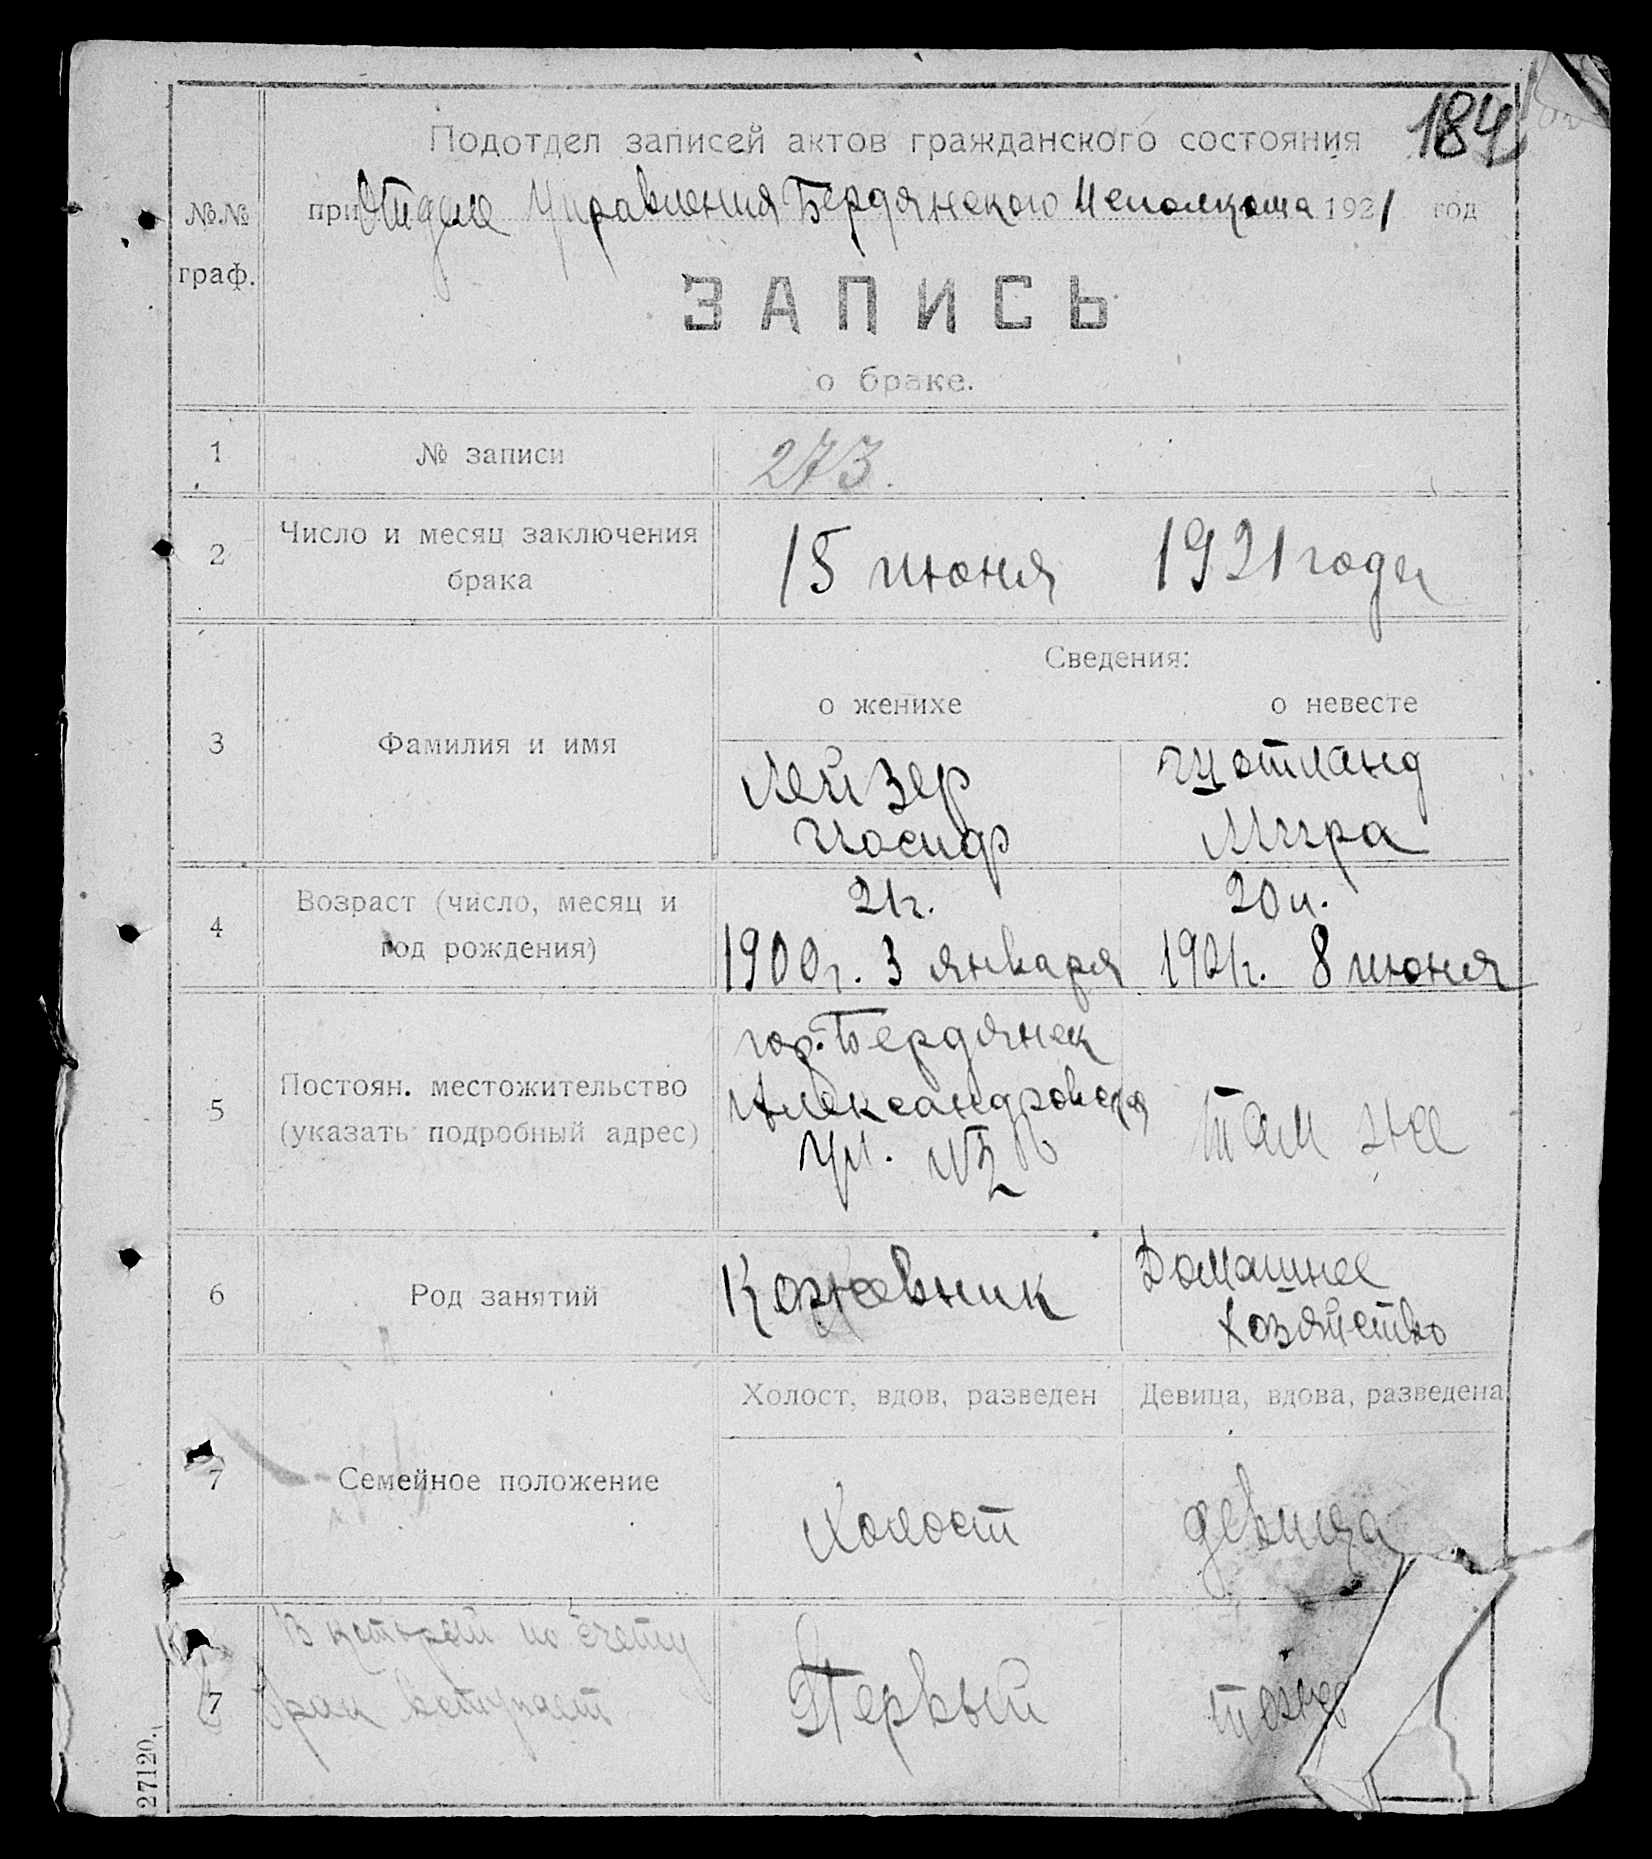 184
Подотдел записей актов гражданского состояния
при Отделе Управления Бердянского Исполкома 1921 год
№№
граф.
ЗАПИСЬ
о браке.
1 № записи 273.
2 Число и месяц заключения
брака
15 июня 1921 года
Сведения:
о женихе о невесте
3 Фамилия и имя
Лейзер Шотланд
Иосиф Мира
4 Возраст (число, месяц и
год рождения)
21 г. 20 л.
1900 г. 3 января 1901 г. 8 июня
5 Постоян. местожительство
(указать подробный адрес)
гор. Бердянск
Александровская
ул. там же
6 Род занятий
Кожевник Домашнее
хозяйство
Холост, вдов, разведен Девица, вдова, разведена
7 Семейное положение
Холост девица
В который по счету
7 брак вступает
Первый тоже
27120.